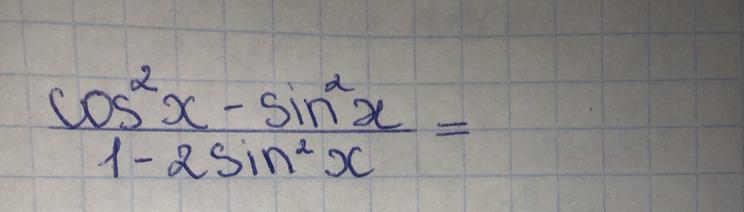 cos²x - sin²x
1 - 2sin²x =